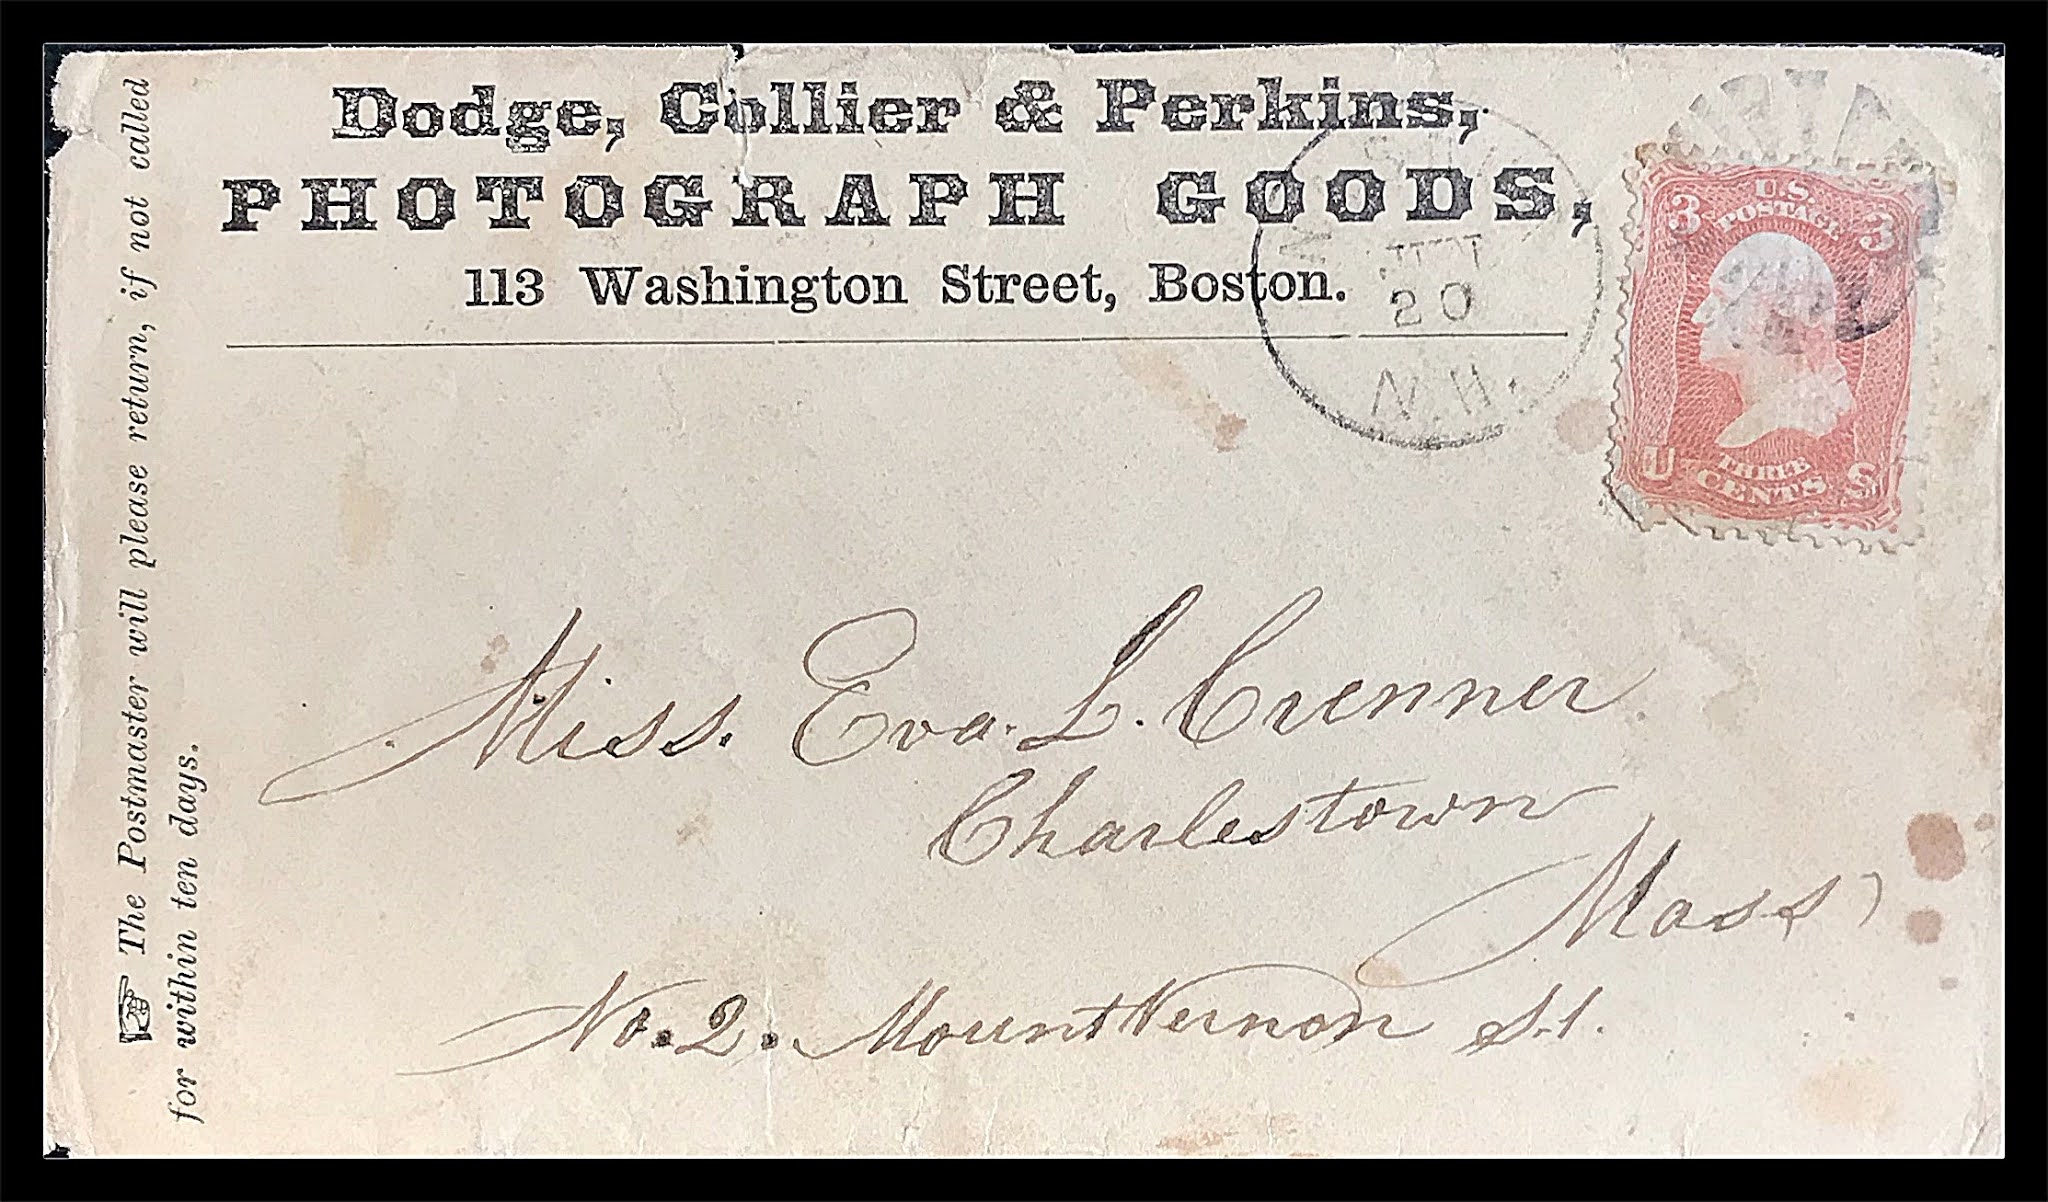 Dodge, Collier & Perkins,
PHOTOGRAPH GOODS,
113 Washington Street, Boston.
☞ The Postmaster will please return, if not called
for within ten days.
20
N.H.
3 U.S. 3
POSTAGE
U S
THREE
CENTS
Miss. Eva. L. Crenner
Charlestown
Mass
No. 2. Mount Vernon St.